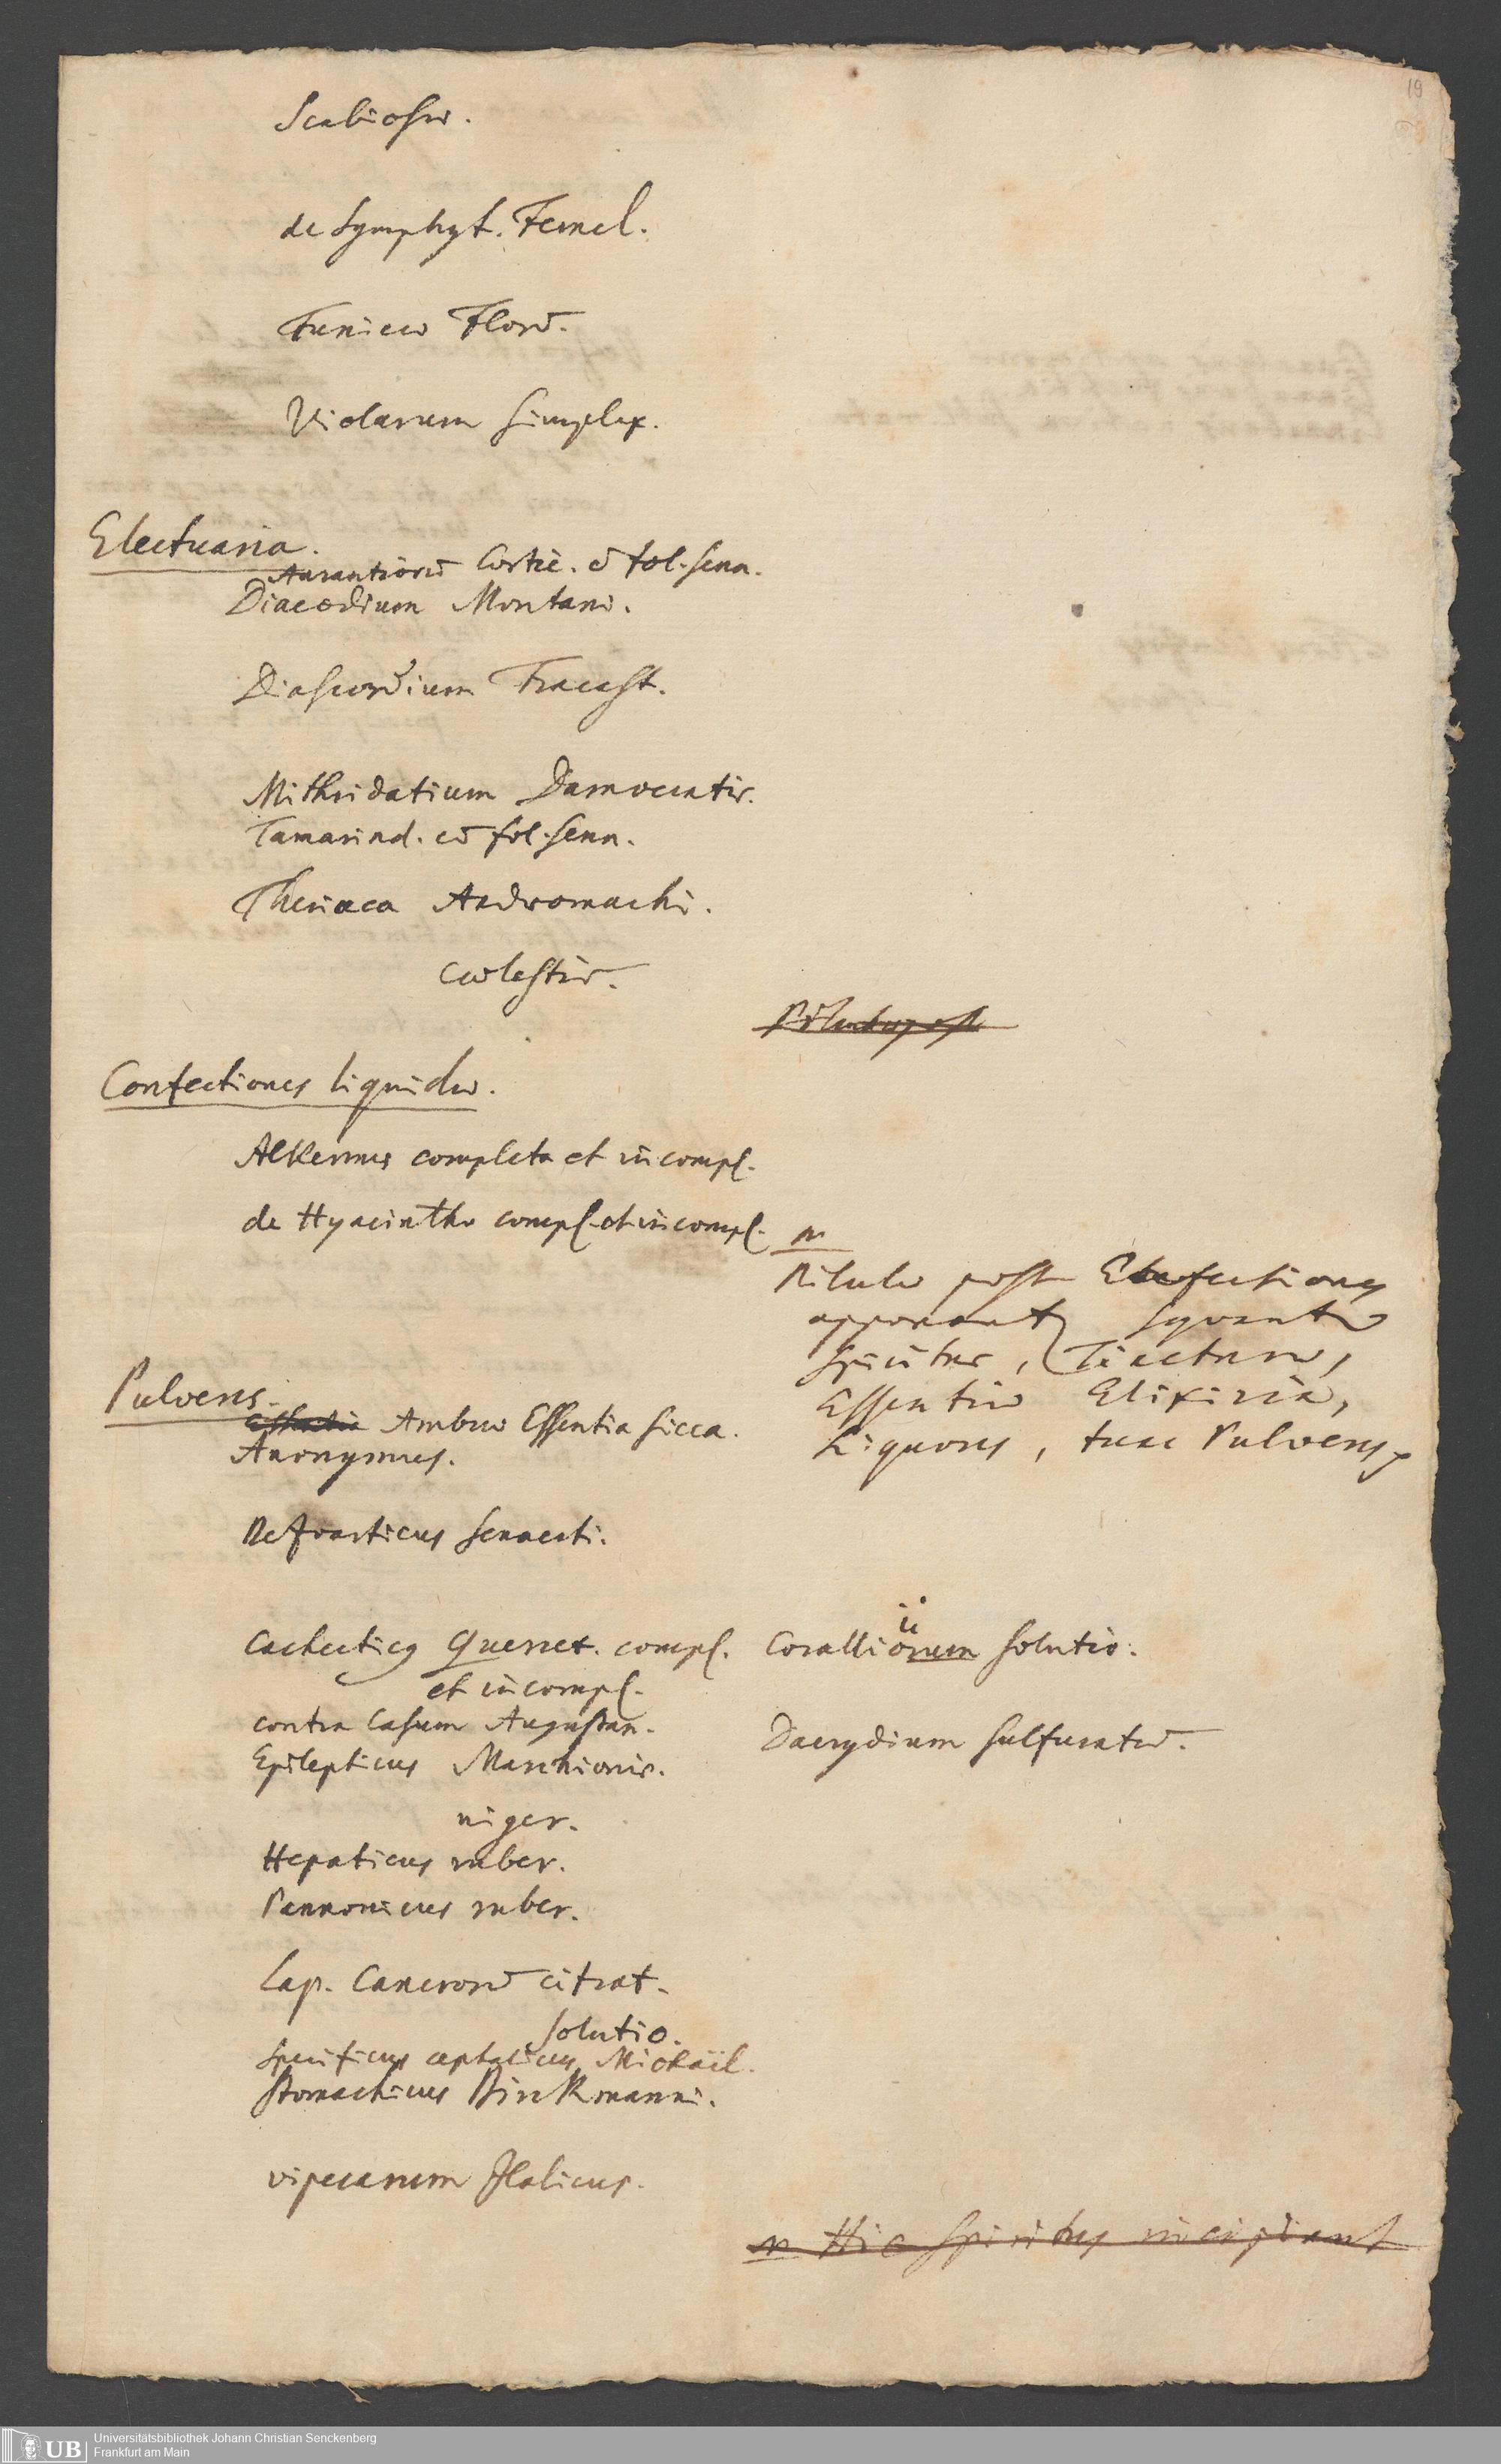 19
Scabiosæ.
de Symphyt. Fernel.
Tunicæ Florū.
Violarum simplex.
Electuaria.
Aurantiorū Cortic. cū fol. senn.
Diacodium Montani.
Diascordium Fracast.
Mithridatium Damocratis.
Tamarind. cū fol. senn.
Theriaca Andromachi.
cœlestis.
Confectiones liquidæ.
Alkermes completa et incompl.
de Hyacintho compl. et incompl.
n
Pilulæ post
apponant sequentur
Spiritus, Tincturæ,
Essentiæ Elixiria,
Liquores, tunc Pulveres
Pulveres.
Ambræ Essentia sicca.
Anonymus.
Bezoarticus Sennerti.
Cachecticus Quercet. compl.
et incompl.
contra Casum Augustan.
Epilepticus Marchionis.
niger.
Hepaticus ruber.
Pannonicus ruber.
Lap. Cancrorū citrat.
solutio.
Specificus cephalicus Michaël.
Stomachicus Birkmanni.
viperarum Italicus.
Coralliorum solutio.
Dacrydium sulfuratū.
n Hic Spiritus incipiant
UB Universitätsbibliothek Johann Christian Senckenberg
Frankfurt am Main